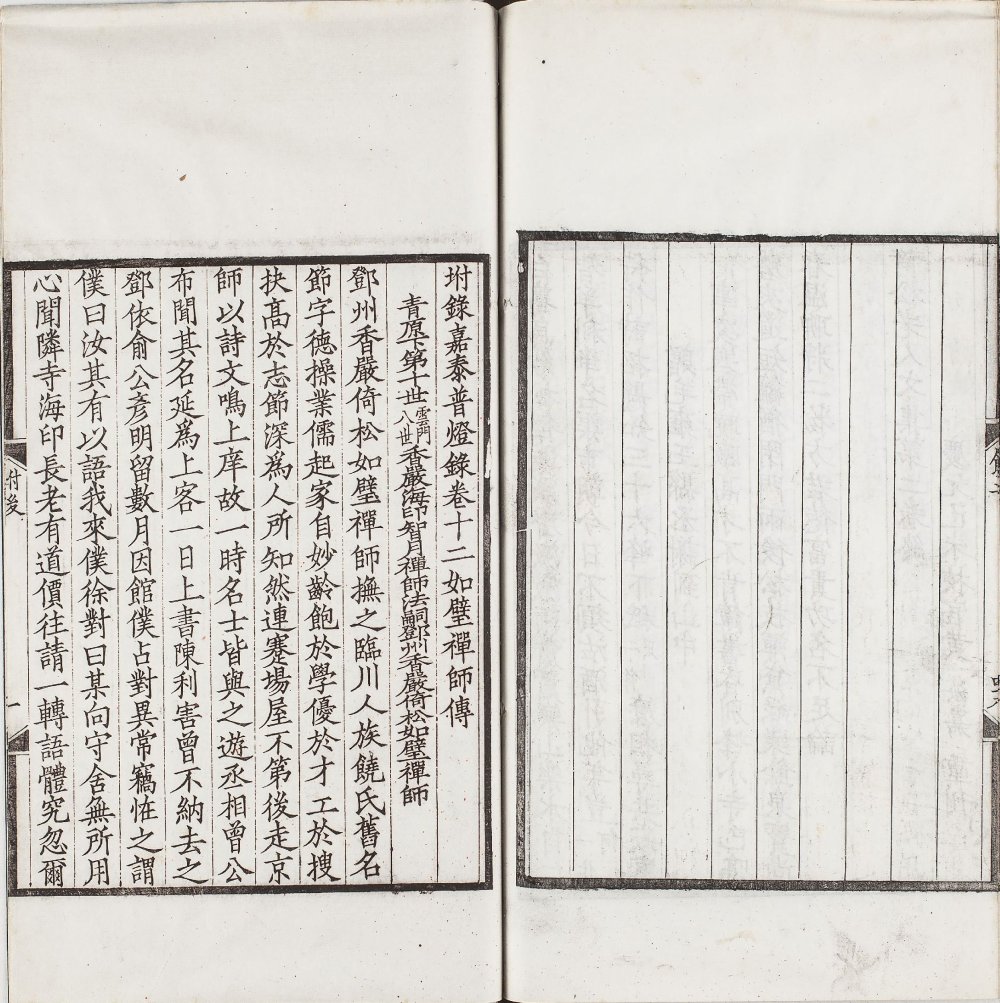 坿錄嘉泰普燈錄卷十二如璧禪師傳
青原下第十世雲門八世香嚴海印智月禪師法嗣鄧州香嚴倚松如璧禪師
鄧州香嚴倚松如璧禪師撫之臨川人族饒氏舊名
節字德操業儒起家自妙齡飽於學優於才工於搜
抉高於志節深爲人所知然連蹇場屋不第後走京
師以詩文鳴上庠故一時名士皆與之遊丞相曾公
布聞其名延爲上客一日上書陳利害曾不納去之
鄧依俞公彥明留數月因館僕占對異常竊恠之謂
僕曰汝其有以語我來僕徐對曰某向守舍無所用
心聞隣寺海印長老有道價往請一轉語體究忽爾
附後
一